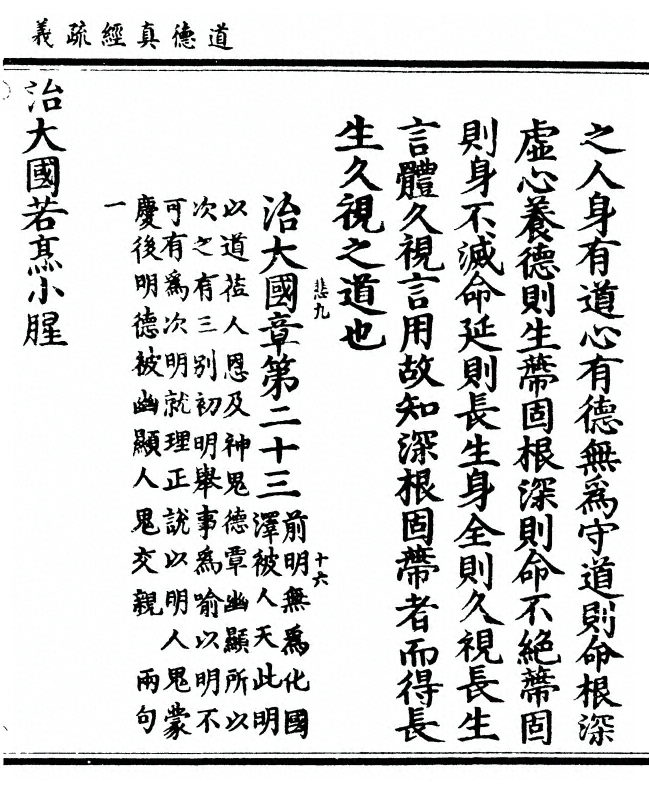 道德真經疏義
之人身有道心有德無爲守道則命根深
虛心養德則生蔕固根深則命不絕蔕固
則身不滅命延則長生身全則久視長生
言體久視言用故知深根固蔕者而得長
生久視之道也
悲九
十六
治大國章第二十三
前明無爲化國
澤被人天此明
以道莅人恩及神鬼德章幽顯所以
次之有三別初明舉事爲喻以明不
可有爲次明就理正說以明人鬼蒙
慶後明德被幽顯人鬼交親 兩句
一
治大國若烹小腥